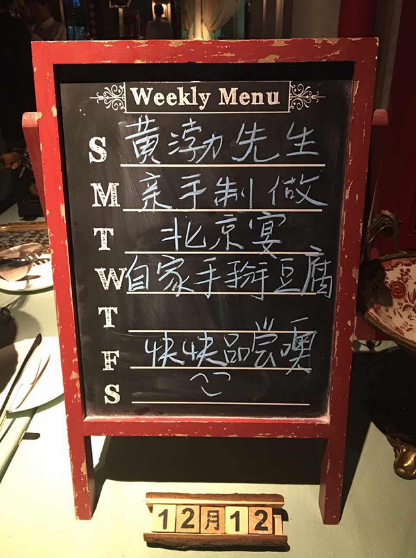 Weekly Menu
S 黄渤先生
M 亲手制做
T 北京宴
W 自家手掰豆腐
T
F 快快品尝噢
S
12月12